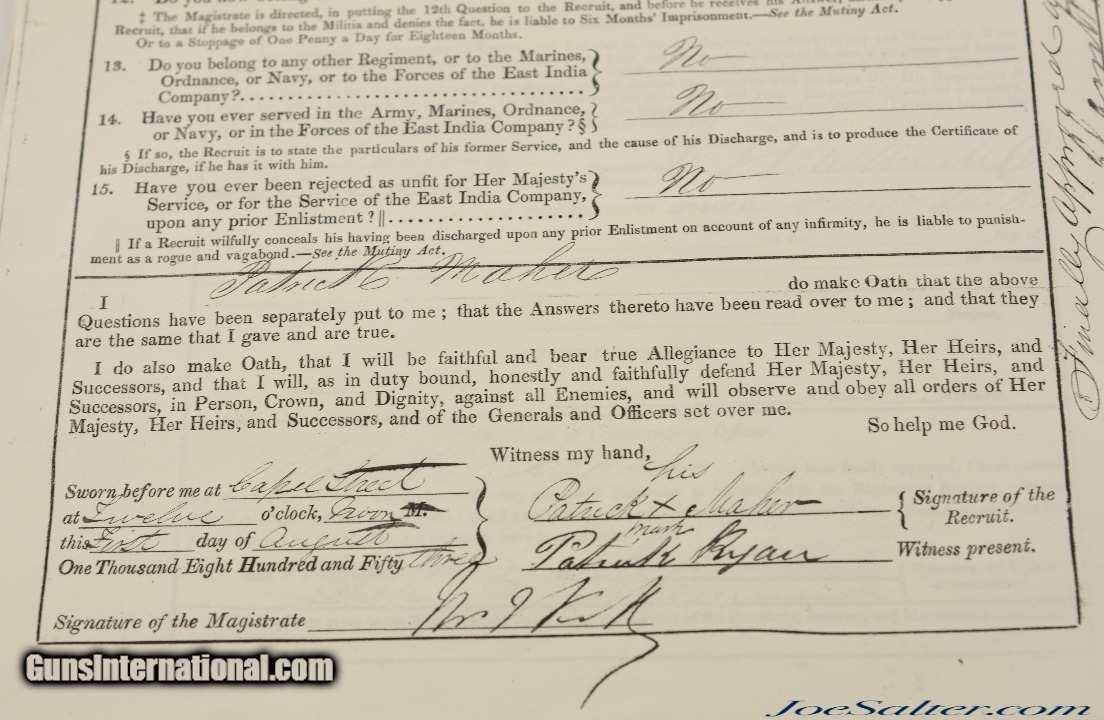 ‡ The Magistrate is directed, in putting the 12th Question to the Recruit, and before he receives his Answer,
Recruit, that if he belongs to the Militia and denies the fact, he is liable to Six Months' Imprisonment.—See the Mutiny Act.
Or to a Stoppage of One Penny a Day for Eighteen Months.
13. Do you belong to any other Regiment, or to the Marines, No
Ordnance, or Navy, or to the Forces of the East India
Company?
14. Have you ever served in the Army, Marines, Ordnance, No
or Navy, or in the Forces of the East India Company? §
§ If so, the Recruit is to state the particulars of his former Service, and the cause of his Discharge, and is to produce the Certificate of
his Discharge, if he has it with him.
15. Have you ever been rejected as unfit for Her Majesty's No
Service, or for the Service of the East India Company,
upon any prior Enlistment? ||
|| If a Recruit wilfully conceals his having been discharged upon any prior Enlistment on account of any infirmity, he is liable to punish-
ment as a rogue and vagabond.—See the Mutiny Act.
I Patrick Maher do make Oath that the above
Questions have been separately put to me; that the Answers thereto have been read over to me; and that they
are the same that I gave and are true.
I do also make Oath, that I will be faithful and bear true Allegiance to Her Majesty, Her Heirs, and
Successors, and that I will, as in duty bound, honestly and faithfully defend Her Majesty, Her Heirs, and
Successors, in Person, Crown, and Dignity, against all Enemies, and will observe and obey all orders of Her
Majesty, Her Heirs, and Successors, and of the Generals and Officers set over me.
So help me God.
Witness my hand,
his
Sworn before me at Capel Street
Patrick x Maher Signature of the Recruit.
mark
at Twelve o'clock, Noon M.
this First day of August
Patrick Ryan Witness present.
One Thousand Eight Hundred and Fifty three
Signature of the Magistrate
Finally approved
GunsInternational.com
JoeSalter.com